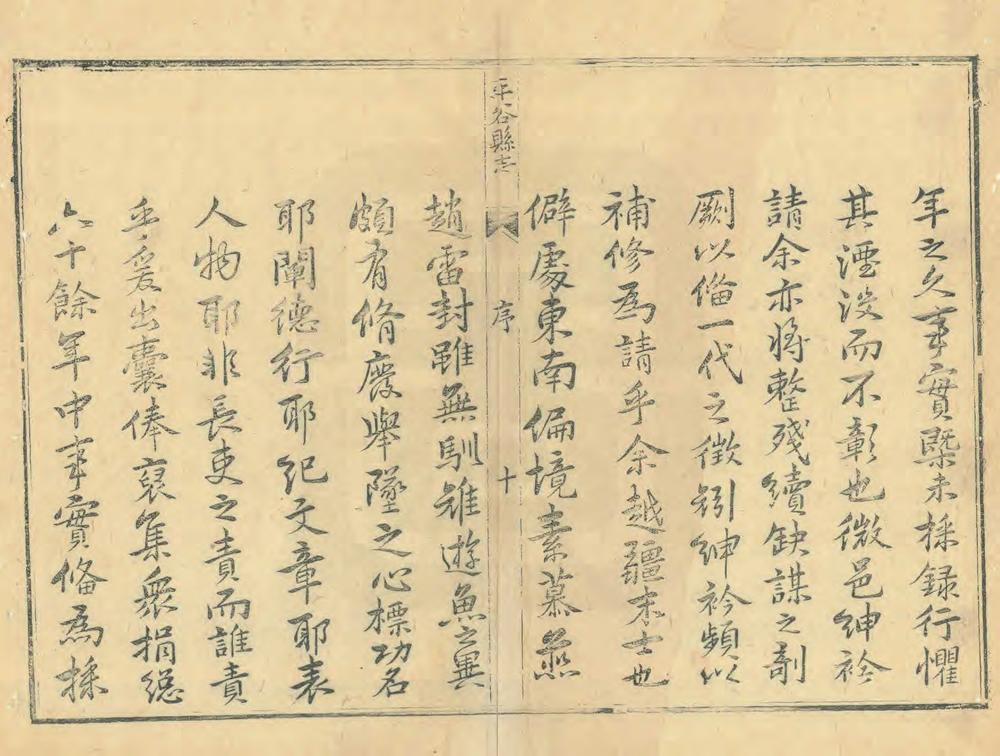 年之久事實槩未採録行懼
其湮没而不彰也微邑紳衿
請余亦將整殘續缺謀之剞
劂以俻一代之徵矧紳衿頻以
補修為請乎余越疆末士也
僻處東南偏境素慕燕
平谷縣志
序
十
趙雷封雖無馴雉遊魚之異
頗有脩廢舉墜之心標功名
耶闡德行耶紀文章耶表
人物耶非長吏之責而誰責
乎爰出囊俸裒集衆捐總
六十餘年中事實俻為採